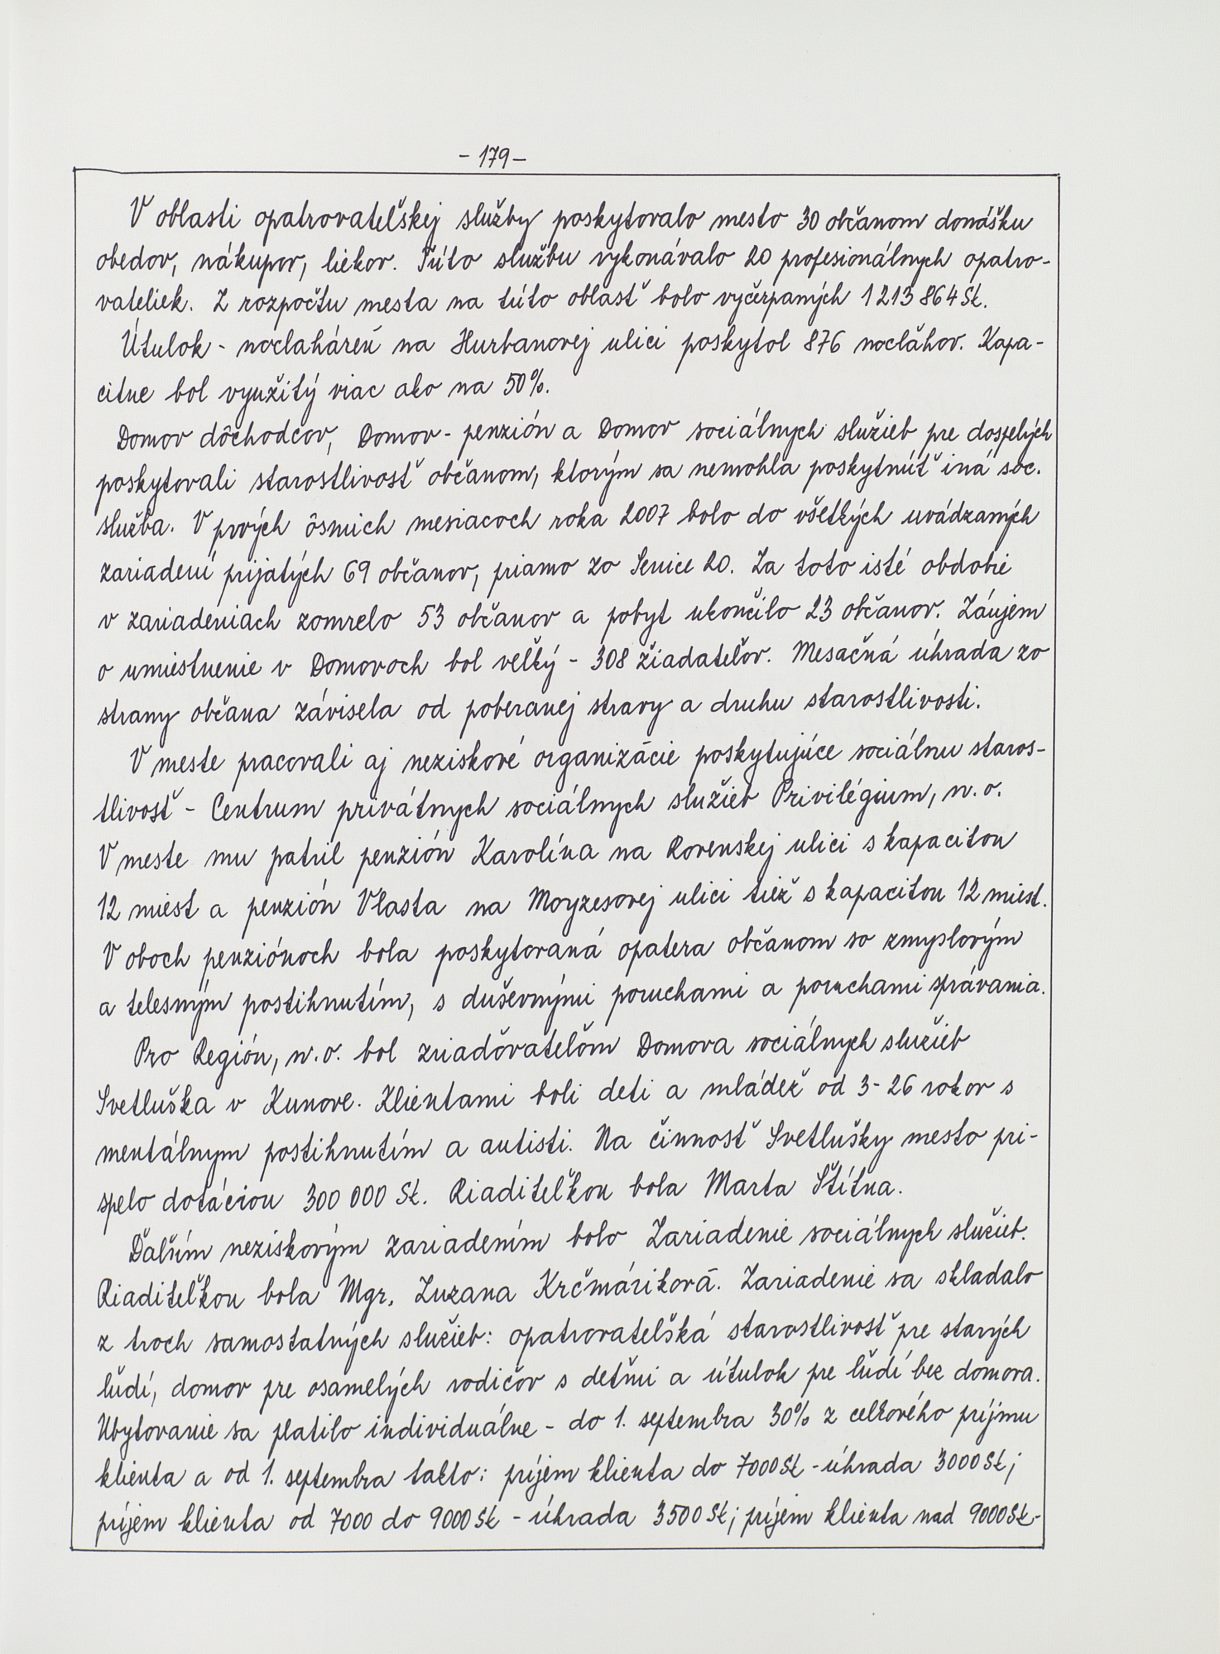 - 179 -
V oblasti opatrovateľskej služby poskytovalo mesto 30 občanom donášku
obedov, nákupov, liekov. Túto službu vykonávalo 20 profesionálnych opatro-
vateliek. Z rozpočtu mesta na túto oblasť bolo vyčerpaných 1 213 864 Sk.
Útulok - nocľaháreň na Hurbanovej ulici poskytol 876 nocľahov. Kapa-
citne bol využitý viac ako na 50%.
Domov dôchodcov, Domov - penzión a Domov sociálnych služieb pre dospelých
poskytovali starostlivosť občanom, ktorým sa nemohla poskytnúť iná soc.
služba. V prvých ôsmich mesiacoch roka 2007 bolo do všetkých uvádzaných
zariadení prijatých 69 občanov, priamo zo Senice 20. Za toto isté obdobie
v zariadeniach zomrelo 53 občanov a pobyt ukončilo 23 občanov. Záujem
o umiestnenie v Domovoch bol veľký - 308 žiadateľov. Mesačná úhrada zo
strany občana závisela od poberanej stravy a druhu starostlivosti.
V meste pracovali aj neziskové organizácie poskytujúce sociálnu staros-
tlivosť - Centrum privátnych sociálnych služieb Privilégium, n.o.
V meste mu patril penzión Karolína na Rovenskej ulici s kapacitou
12 miest a penzión Vlasta na Moyzesovej ulici tiež s kapacitou 12 miest.
V oboch penziónoch bola poskytovaná opatera občanom so zmyslovým
a telesným postihnutím, s duševnými poruchami a poruchami správania.
Pro Región, n.o. bol zriaďovateľom Domova sociálnych služieb
Svetluška v Kunove. Klientami boli deti a mládež od 3-26 rokov s
mentálnym postihnutím a autisti. Na činnosť Svetlušky mesto pri-
spelo dotáciou 300 000 Sk. Riaditeľkou bola Marta Štítna.
Ďalším neziskovým zariadením bolo Zariadenie sociálnych služieb.
Riaditeľkou bola Mgr. Zuzana Krčmáriková. Zariadenie sa skladalo
z troch samostatných služieb: opatrovateľská starostlivosť pre starých
ľudí, domov pre osamelých rodičov s deťmi a útulok pre ľudí bez domova.
Ubytovanie sa platilo individuálne - do 1. septembra 30% z celkového príjmu
klienta a od 1. septembra takto: príjem klienta do 7000 Sk - úhrada 3000 Sk;
príjem klienta od 7000 do 9000 Sk - úhrada 3500 Sk; príjem klienta nad 9000 Sk -